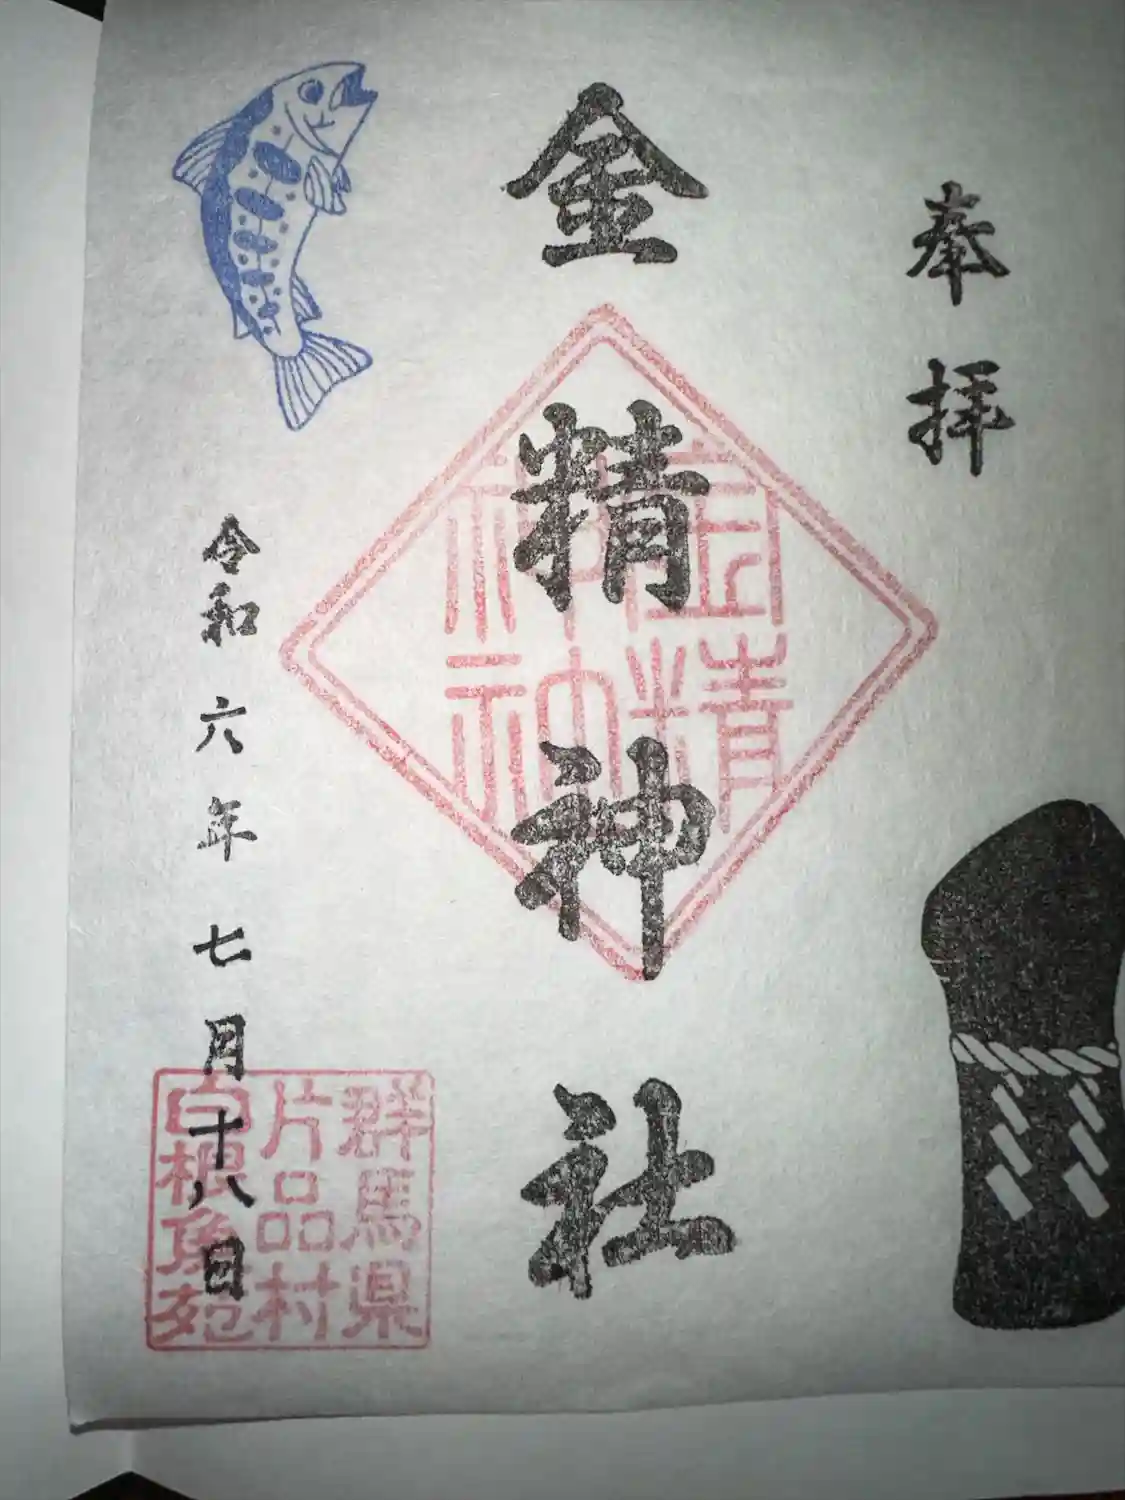 奉拝
金精神社
金精神社
令和六年七月十八日
群馬県
片品村
白根魚苑